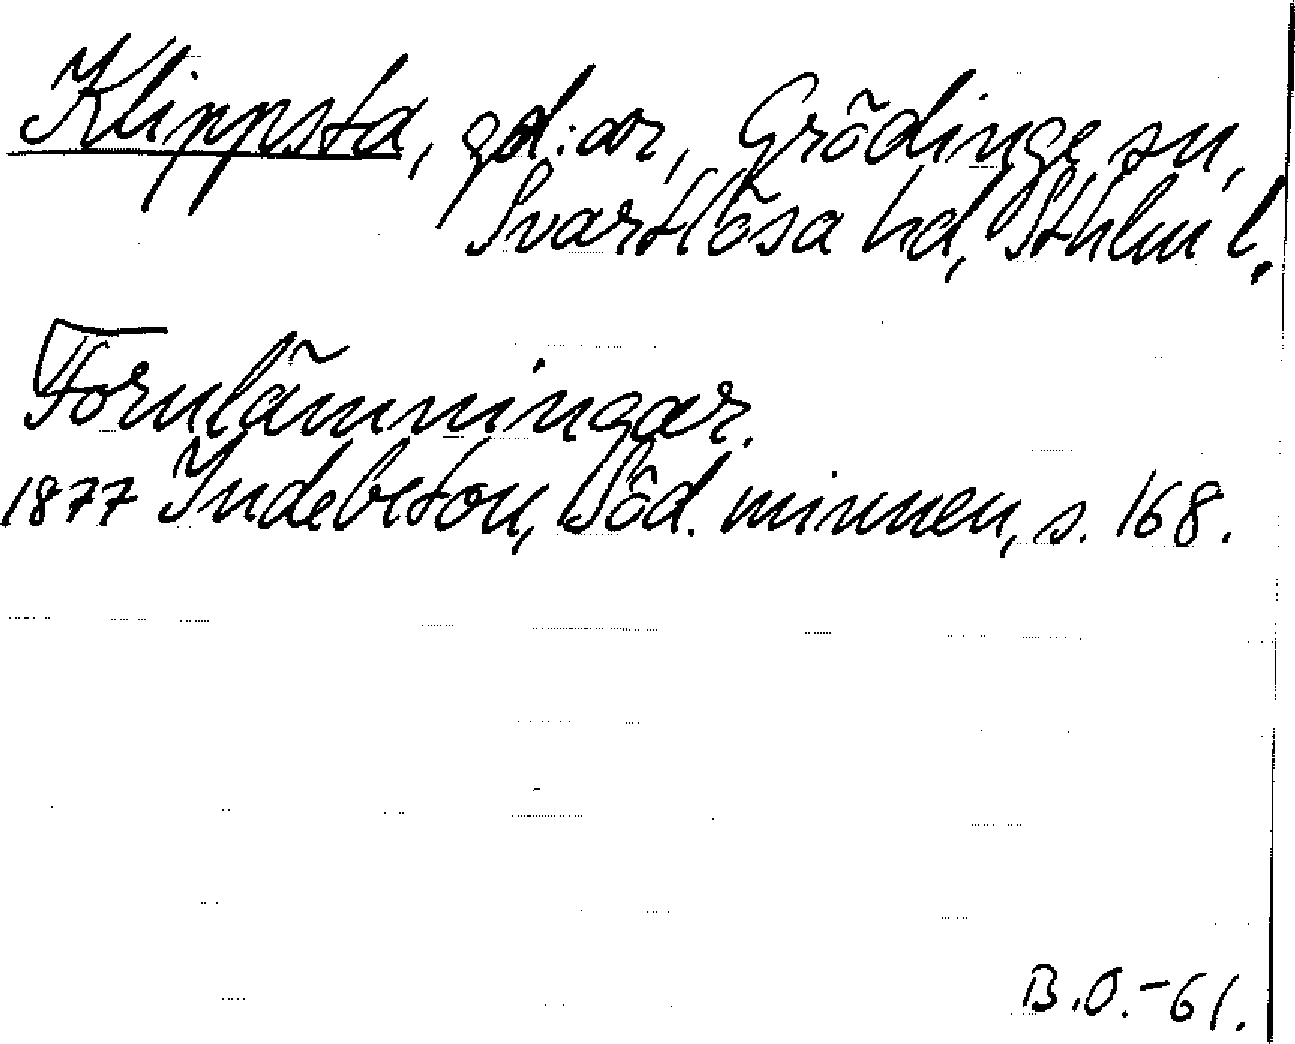 Klippsta, gd:ar, Grödinge sn,
Svartlösa hd, Sthlm l.
Fornlämningar.
1877 Indebetou, Söd. minnen, s. 168.
B.O.-61.